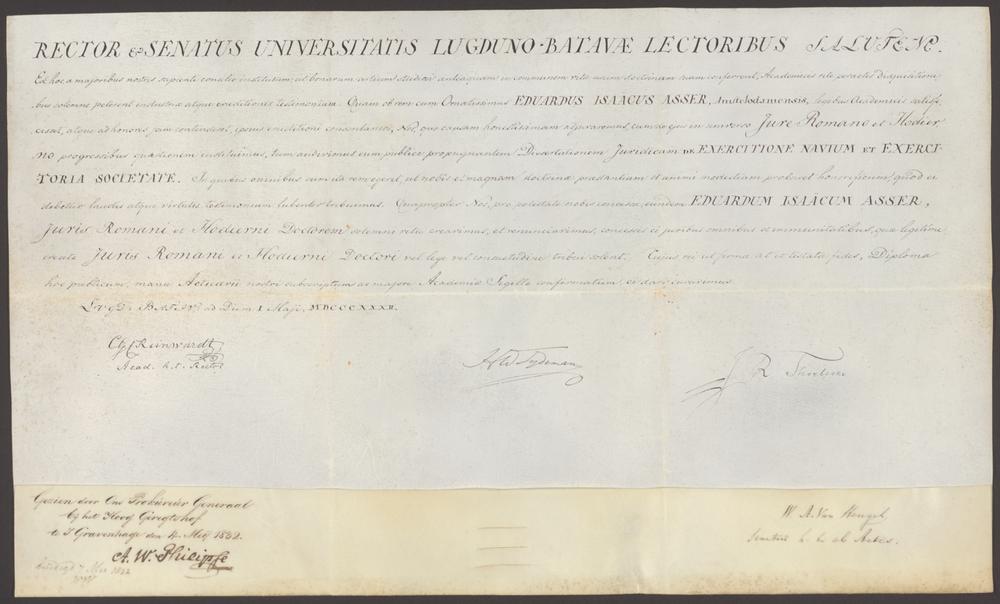 RECTOR & SENATUS UNIVERSITATIS LUGDUNO-BATAVÆ LECTORIBUS SALUTEM.
Ex hoc a majoribus nostris sapienti consilio institutum, ut bonarum artium studia antequam in communem vitæ usum doctrinam suam conferrent, Academicis rite peractis disquisitioni
bus solemne peterent industriæ atque eruditionis testimonium. Quam ob rem cum Ornatissimus EDUARDUS ISAACUS ASSER, Amstelodamensis, legibus Academicis satisfe
cisset, atque ad honores, jam contenderet, ipsius eruditioni conantantes, Nos, quo causam honestissimam adjuvaremus, cum de ejus in universo Jure Romano et Hodier
no progressibus quæstionem instituimus, tum audivimus eum publice propugnantem Dissertationem Juridicam DE EXERCITIONE NAVIUM ET EXERCI-
TORIA SOCIETATE. In quibus omnibus cum ita rem egerit, ut nobis et magnam doctrinæ præstantiam et animi modestiam probaret honorificum, quod ei
debetur laudis atque virtutis testimonium lubenter tribuimus. Quapropter Nos, pro potestate nobis concessa, eundem EDUARDUM ISAÄCUM ASSER,
Juris Romani et Hodierni Doctorem solemni ritu creavimus, et renunciavimus, concessis ei juribus omnibus et immunitatibus, quæ legitime
creato Juris Romani et Hodierni Doctori vel lege vel consuetudine tribui solent. Cujus rei ut firma sit et testata fides, Diploma
hoc publicum, manu Actuarii nostri subscriptum ac majore Academiæ Sigillo confirmatum, ei dari curavimus.
LUGD: BATAV: ad Diem I Maji, MDCCCXXXII.
Reinwardt
Acad. h.t. Rector
H W Tydeman
J R Thorbecke
Gezien door Ons Prokureur Generaal
bij het Hoog Geregtshof
te S'Gravenhage den 4. Mey 1832.
A. W. Philipse
7 Mei 1832
W. A. Van Hengel,
Senatui h. t. ab Actis.